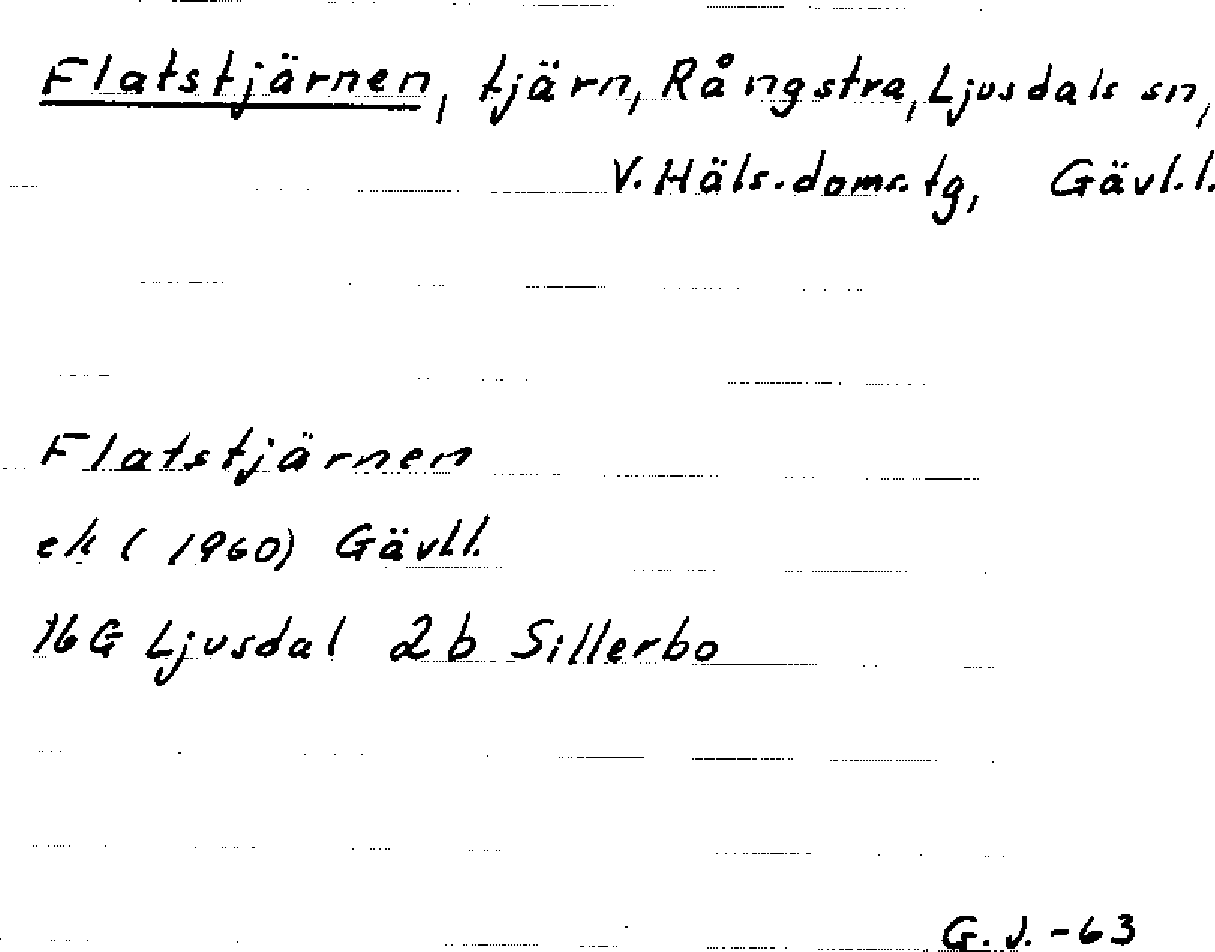 Flatstjärnen, tjärn, Rångstra, Ljusdals sn,
V. Häls. doms. tg, Gävl. l.
Flatstjärnen
ek (1960) Gävl.l.
16G Ljusdal 2b Sillerbo
G. J. -63